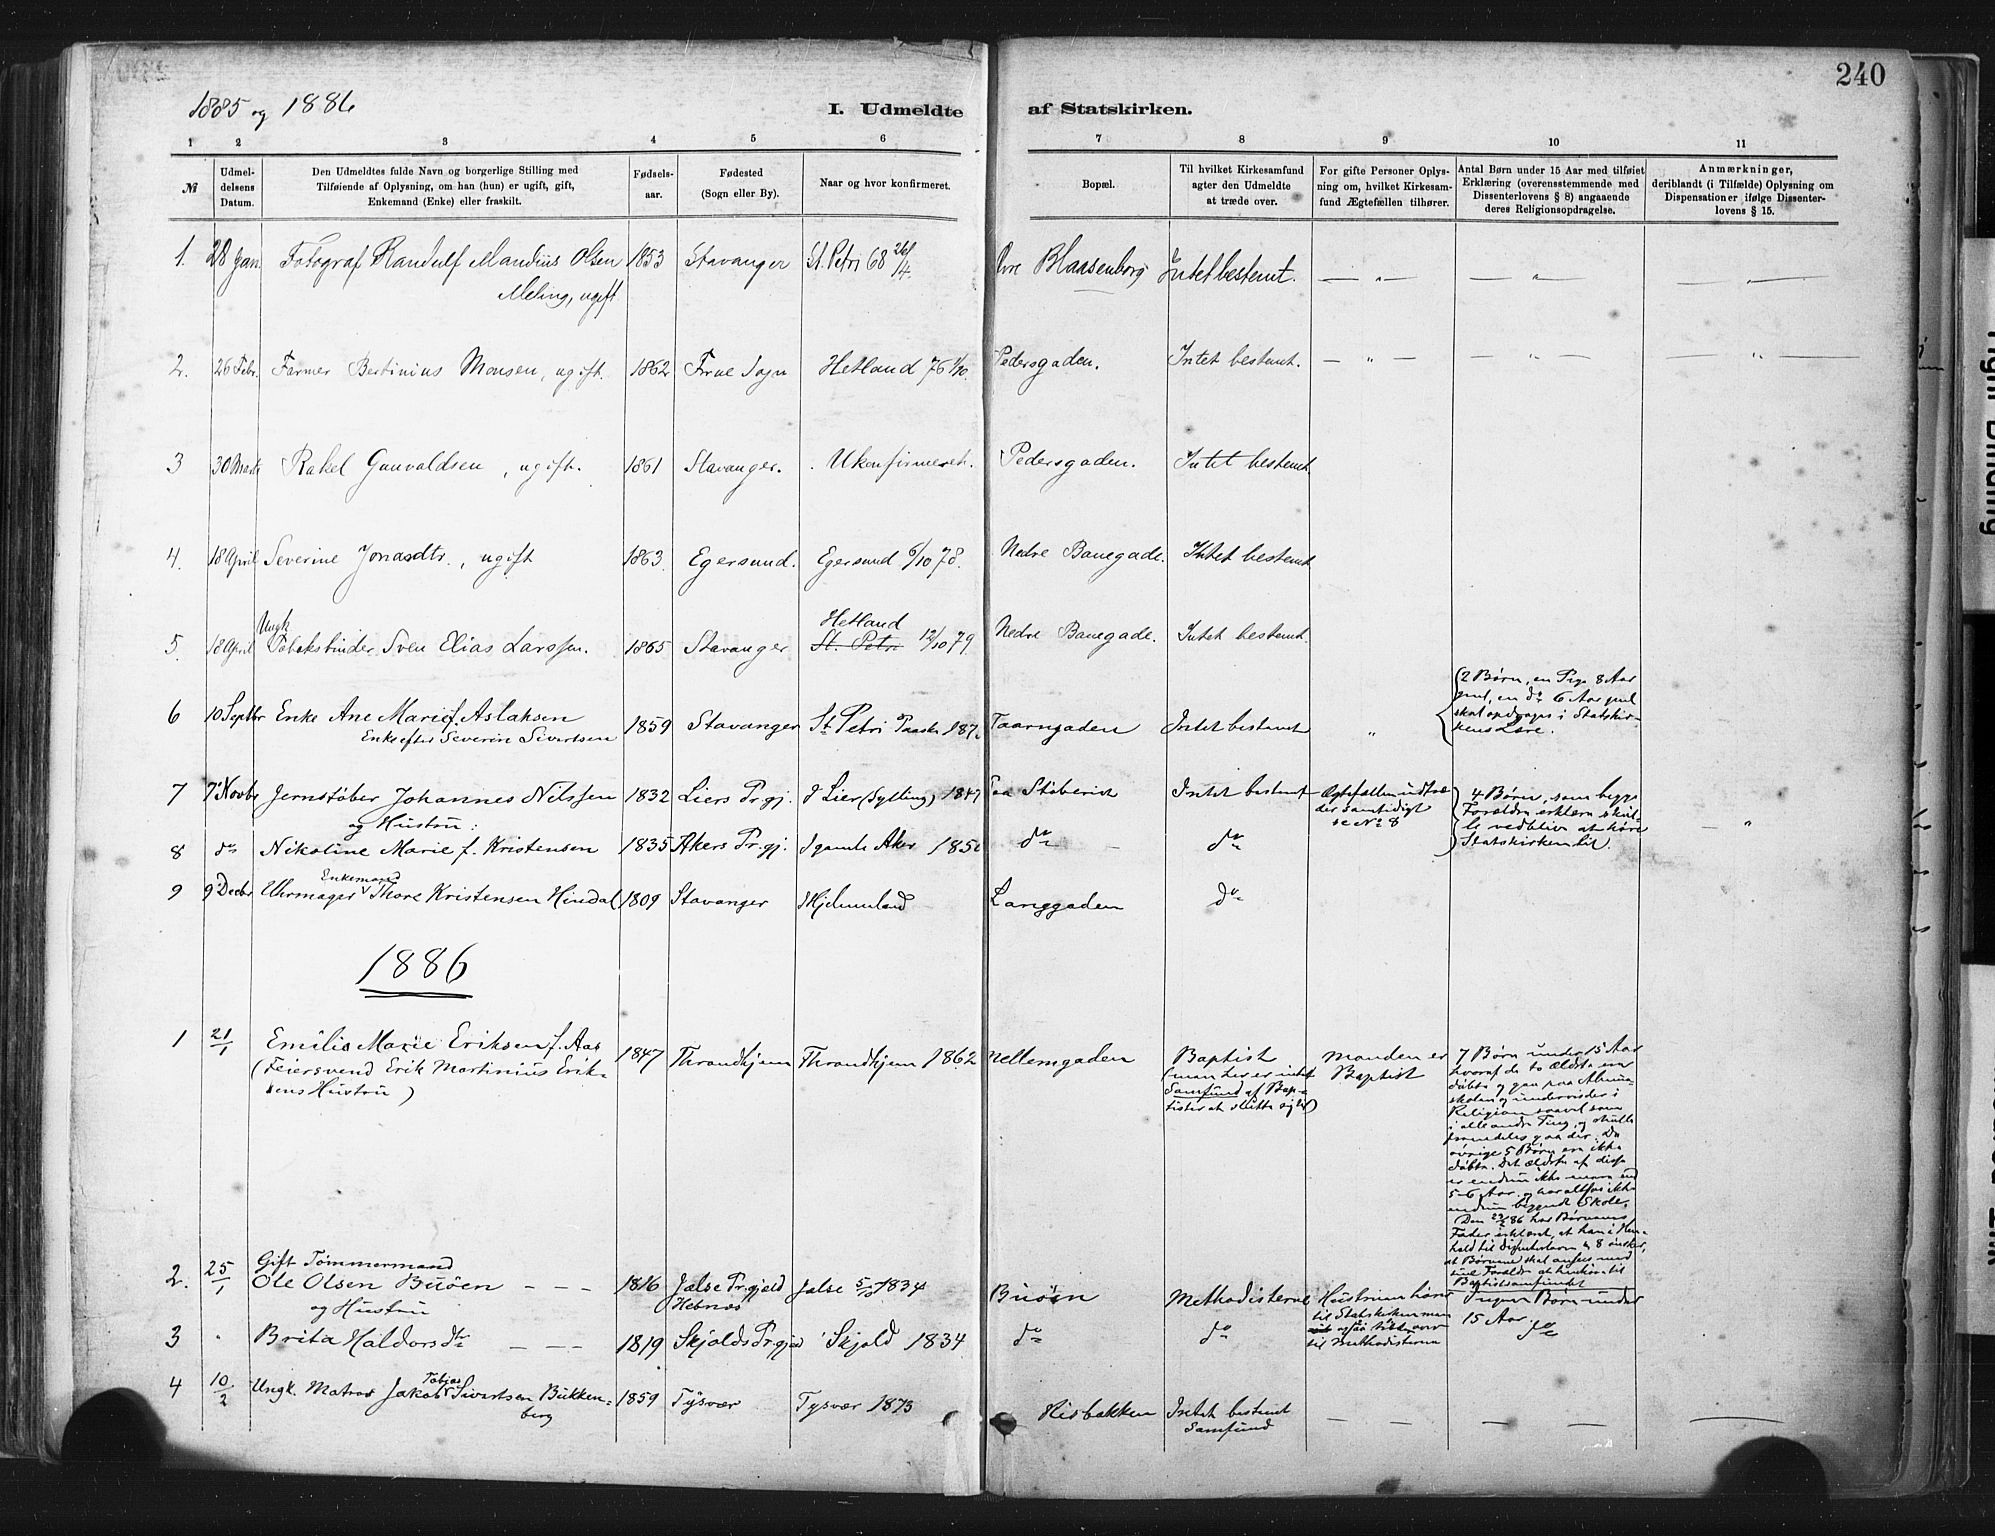 240
1885 og 1886
I. Udmeldte af Statskirken.
1 2 3 4 5 6 7 8 9 10 11
№
Udmeldelsens Datum.
Den Udmeldtes fulde Navn og borgerlige Stilling med
Tilføiende af Oplysning, om han (hun) er ugift, gift,
Enkemand (Enke) eller fraskilt.
Fødselsaar.
Fødested
(Sogn eller By).
Naar og hvor konfirmeret.
Bopæl.
Til hvilket Kirkesamfund
agter den Udmeldte
at træde over.
For gifte Personer Oplys-
ning om, hvilket Kirkesam-
fund Ægtefællen tilhører.
Antal Børn under 15 Aar med tilføiet
Erklæring (overensstemmende med
Dissenterlovens § 8) angaaende
deres Religionsopdragelse.
Anmærkninger,
deriblandt (i Tilfælde) Oplysning om
Dispensationer ifølge Dissenter-
lovens § 15.
1. 28 Jan. Fotograf Randulf Mandius Olsen 1853 Stavanger St. Petri 68 26/4 Øvre Blaasenborg Intet bestemt. — „ — — „ — — „ —
Meling, ugift
2. 26 Febr. Farmer Bertinius Monsen, ugift. 1862 Frue Sogn Hetland 76 1/10. Pedersgaden. Intet bestemt. — „ — — „ — „
3 30 Marts Rakel Gunvaldsen, ugift. 1861 Stavanger. Ukonfirmeret. Pedersgaden. Intet bestemt
4. 18 April Severine Jonasdtr., ugift 1863. Egersund. Egersund 6/10 78. Nedre Banegade. Intet bestemt
Ungk Hetland
5. 18 April Tobaksbinder Sven Elias Larssen. 1865 Stavanger St. Petri 12/10 79 Nedre Banegade. Intet bestemt.
6 10 Septbr Enke Ane Marie f. Aslaksen 1859 Stavanger St Petri Paaske Taarngaden Intet bestemt „
Enke efter Severin Sivertsen
2 Børn, en Pige 8 Aar
gml, en do 6 Aar gml
skal opdrages i Statskir-
kens Lære.
7 7 Novbr Jernstøber Johannes Nilssen 1832 Liers Pr.gj. i Lier (Sylling) 1847 Paa Støberiet Intet bestemt
og Hustru:
Ægtefællen udtræ-
der samtidigt
se No 8
4 Børn, som begge
Forældre erklærer skul-
le vedblive at høre
Statskirken til.
— „
8 do Nikoline Marie f. Kristensen 1835 Akers Pr.gj. I gamle Aker do do
Enkemand
9 9 Decbr Uhrmager Thore Kristensen Hindal 1809 Stavanger Hjelmeland Langgaden do
1886
1 21/1 Emilie Marie Eriksen f. Aas 1847 Throndhjem Throndhjem 1862 Nellemgaden
(Feiersvend Erik Martinius Erik-
sens Hustru)
Baptist
(men her er intet
Samfund af Bap-
tister at slutte sig til)
Manden er
Baptist
7 Børn under 15 Aar
hvoraf de to Ældste ere
døbte og gaa paa Almue-
skolen og undervises i
Religion saavel som
i alle andre Ting, og skulle
fremdeles gaa der. De
øvrige 5 Børn ere ikke
døbte. Det ældste af disse
er endnu ikke mere end
5-6 Aar, og har altsaa ikke
endnu begyndt Skole.
Den 23/2 86 har Børnenes
Fader erklæret, at han i Hen-
hold til Dissenterloven § 8 ønsker,
at Børnene skal ansees med
sine Forældre at henhøre til
Baptistsamfundet
Gift Tømmermand
2. 25/1 Ole Olsen Buøen — — — 1816 Jælse Pr.gjeld Jælse 1834 Buøen Methodisterne
og Hustru Hebnæs
Hustruen hører
til Statskirken men
Ingen Børn under
15 Aar.
3 „ Brita Haldorsdtr — — — 1819 Skjolds Pr.gjeld Skjold 1834 do do
til Methodisterne
do
Tobias
4 10/2 Ungk. Matros Jakob Sivertsen Bukken- 1859 Tysvær Tysvær 1873 Risbakken Intet bestemt — — — —
berg Samfund